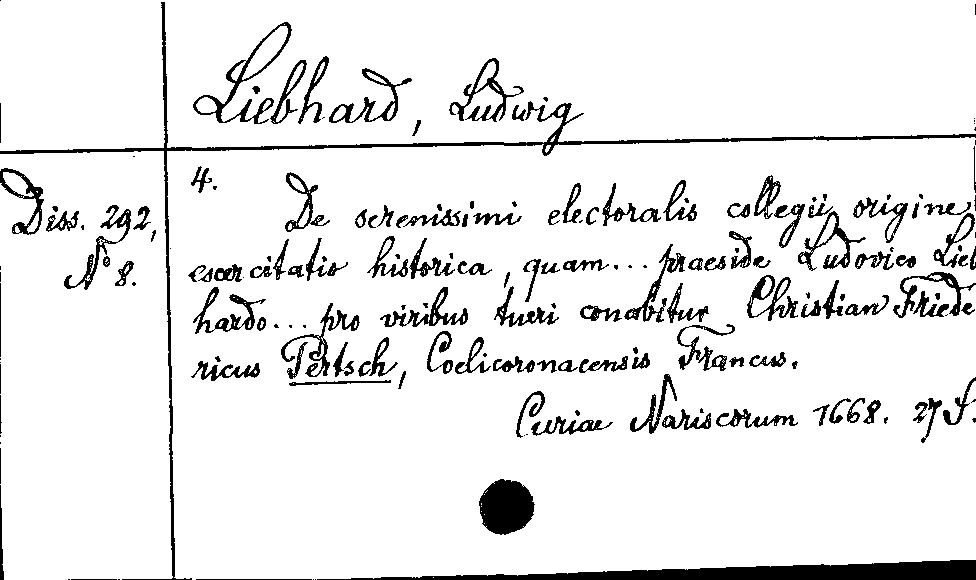 Liebhard, Ludwig
Diss. 292,
No 8.
4.
De serenissimi electoralis collegii origine
exercitatio historica, quam... praeside Ludovico Lieb
hardo... pro viribus tueri conabitur Christian Friede
ricus Pertsch, Coelicoronacensis Francus.
Curiae Nariscorum 1668. 27 S.